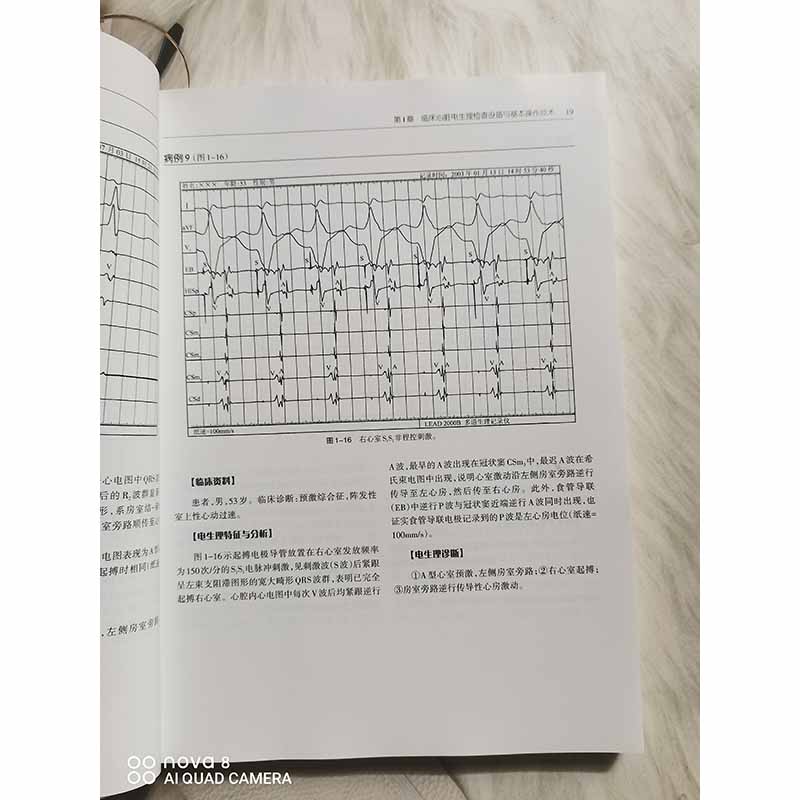 第1章 临床心脏电生理检查设备与基本操作技术 19
病例9（图1-16）
姓名:××× 年龄:53 性别:男
记录时间: 2003年01月13日14时53分40秒
I
aVF
V₁
EB
HISp
CSp
CSm
CSm
CSm
CSd
S S S S S S S
V A V A V A V A V A V A V A
纸速=100mm/s
LEAD 2000B 多道生理记录仪
图1-16 右心室S₁S₁非程控刺激。
【临床资料】
患者,男,53岁。临床诊断:预激综合征,阵发性
室上性心动过速。
【电生理特征与分析】
图1-16示起搏电极导管放置在右心室发放频率
为150次/分的S₁S₁电脉冲刺激,见刺激波(S波)后紧跟
呈左束支阻滞图形的宽大畸形QRS波群,表明已完全
起搏右心室。心腔内心电图中每次V波后均紧跟逆行
A波,最早的A波出现在冠状窦CSm₁中,最迟A波在希
氏束电图中出现,说明心室激动沿左侧房室旁路逆行
传导至左心房,然后传至右心房。此外,食管导联
(EB)中逆行P波与冠状窦近端逆行A波同时出现,也
证实食管导联电极记录到的P波是左心房电位(纸速=
100mm/s)。
【电生理诊断】
①A型心室预激,左侧房室旁路;②右心室起搏;
③房室旁路逆行传导性心房激动。
心电图中QRS
后的R
形,系房室结
室旁路顺传
电图表现为A型
起搏时相同(纸速
,左侧房室旁
nova 8
AI QUAD CAMERA